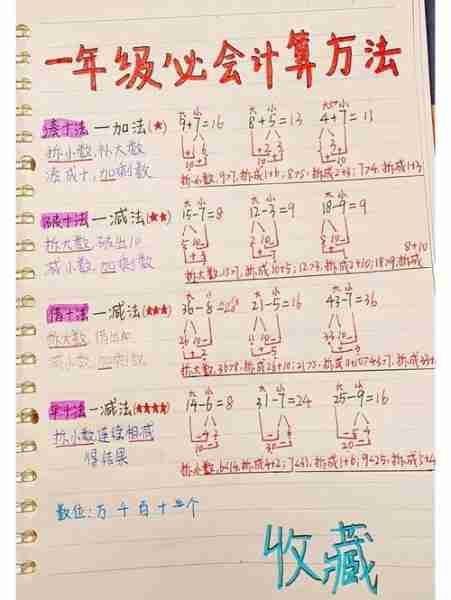 一年级必会计算方法
凑十法—加法(★)
拆小数,补大数
凑成十,加剩数
大 小 大 小 大 小
9+7=16 8+5=13 4+7=11
1 6 2 3 3 1
10 10 10
拆小数,9>7,拆成1+6;8>5,拆成2+3;7>4,拆成1+3
破十法—减法(★★)
拆大数,破出10
减小数,加剩数
大 小 大 小 大 小
15-7=8 12-3=9 18-9=9
5 10 2 10 8 10
8+10
拆大数,15>7,拆成10+5;12>3,拆成2+10;18>9,拆成
借十法—减法(★★★)
拆大数,借出10
减小数,加剩数
大 小 大 小 大 小
36-8=28 21-5=16 43-7=36
26 10 11 10 33 10
平十法—减法(★★★★)
拆小数连续相减
得结果
大 小 大 小 大 小
14-6=8 31-7=24 25-9=16
10 30 20
拆小数,6<14,拆成4+2;7<31,拆成1+6;9<25,拆成5+4
数位:万 千 百 十 个
收藏